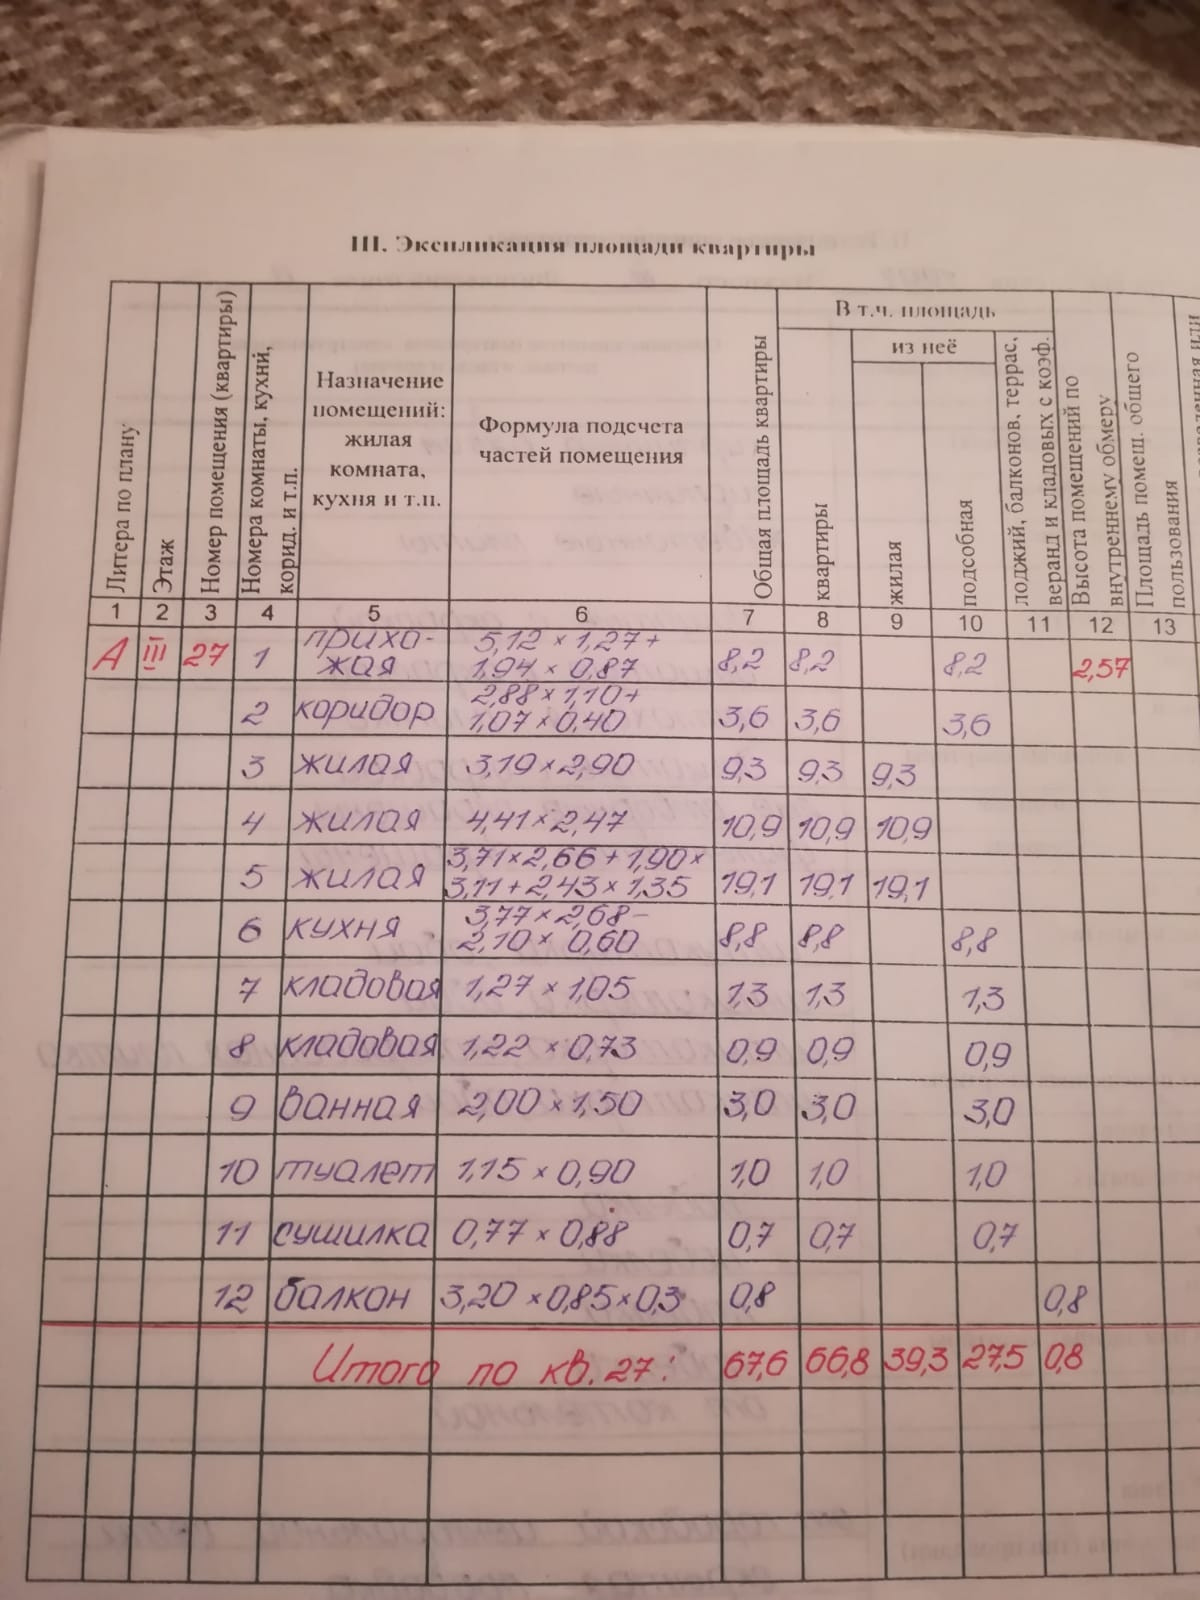 III. Экспликация площади квартиры
Литера по плану
Этаж
Номер помещения (квартиры)
Номера комнаты, кухни,
корид. и т.п.
Назначение
помещений:
жилая
комната,
кухня и т.п.
Формула подсчета
частей помещения
Общая площадь квартиры
В т.ч. площадь
квартиры
из неё
жилая
подсобная
лоджий, балконов, террас,
веранд и кладовых с коэф.
Высота помещений по
внутреннему обмеру
Площадь помещ. общего
пользования
1 2 3 4 5 6 7 8 9 10 11 12 13
А III 27 1 прихо-
жая 5,12 × 1,27 +
1,94 × 0,87 8,2 8,2 8,2 2,57
2 коридор 2,88 × 1,10 +
1,07 × 0,40 3,6 3,6 3,6
3 жилая 3,19 × 2,90 9,3 9,3 9,3
4 жилая 4,41 × 2,47 10,9 10,9 10,9
5 жилая 3,71 × 2,66 + 1,90 ×
3,11 + 2,43 × 1,35 19,1 19,1 19,1
6 кухня 3,77 × 2,68 –
2,10 × 0,60 8,8 8,8 8,8
7 кладовая 1,27 × 1,05 1,3 1,3 1,3
8 кладовая 1,22 × 0,73 0,9 0,9 0,9
9 ванная 2,00 × 1,50 3,0 3,0 3,0
10 туалет 1,15 × 0,90 1,0 1,0 1,0
11 сушилка 0,77 × 0,88 0,7 0,7 0,7
12 балкон 3,20 × 0,85 × 0,3 0,8 0,8
Итого по кв. 27: 67,6 66,8 39,3 27,5 0,8